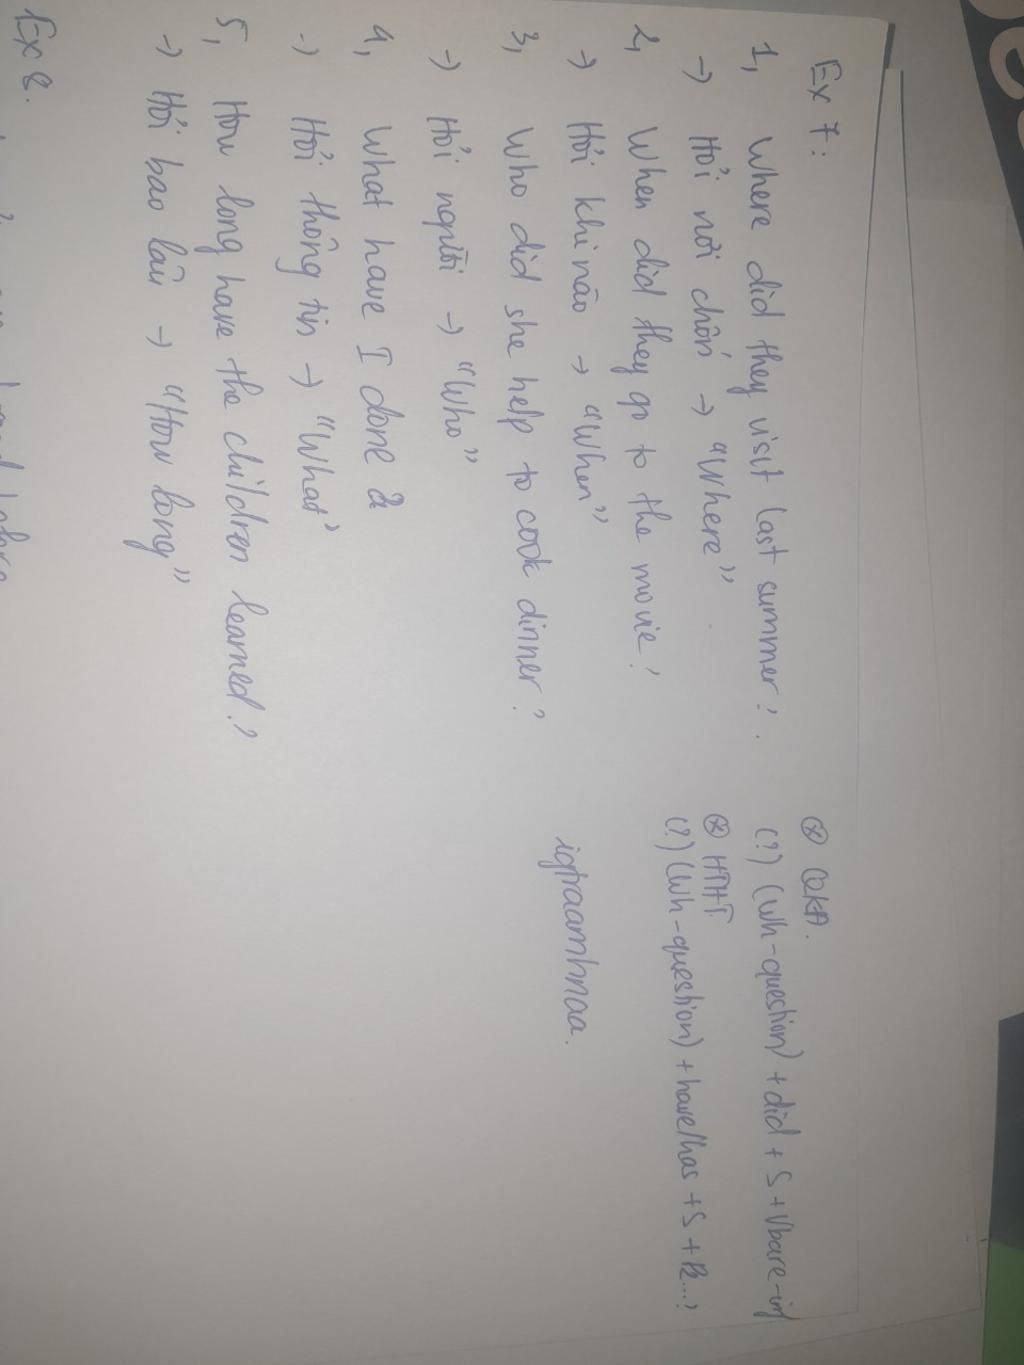 Ex 7:
1, Where did they visit last summer?.
→ Hỏi nơi chốn → "Where"
2, When did they go to the movie?
→ Hỏi khi nào → "When"
3, Who did she help to cook dinner?
→ Hỏi người → "Who"
4, What have I done
→ Hỏi thông tin → "What"
5, How long have the children learned?
→ Hỏi bao lâu → "How long"
Ex 8.
(*) QKĐ.
(?) (Wh-question) + did + S + Vbare-inf
(*) HTHT
(?) (Wh-question) + have/has + S + P2...?